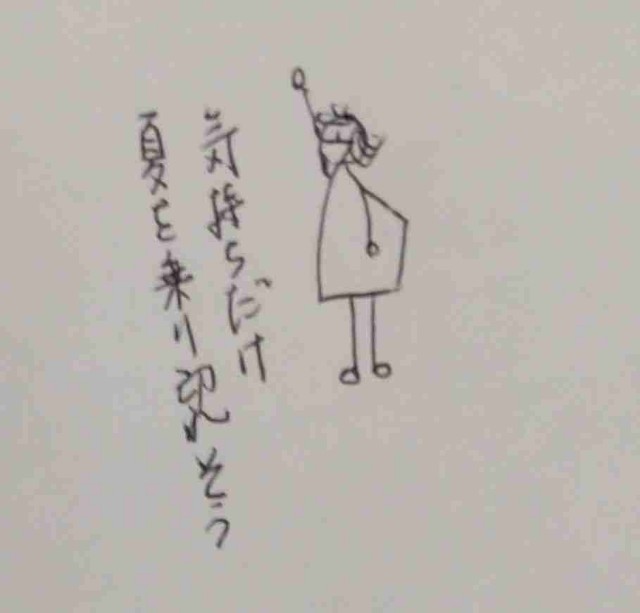 気持ちだけ
夏を乗り視そう